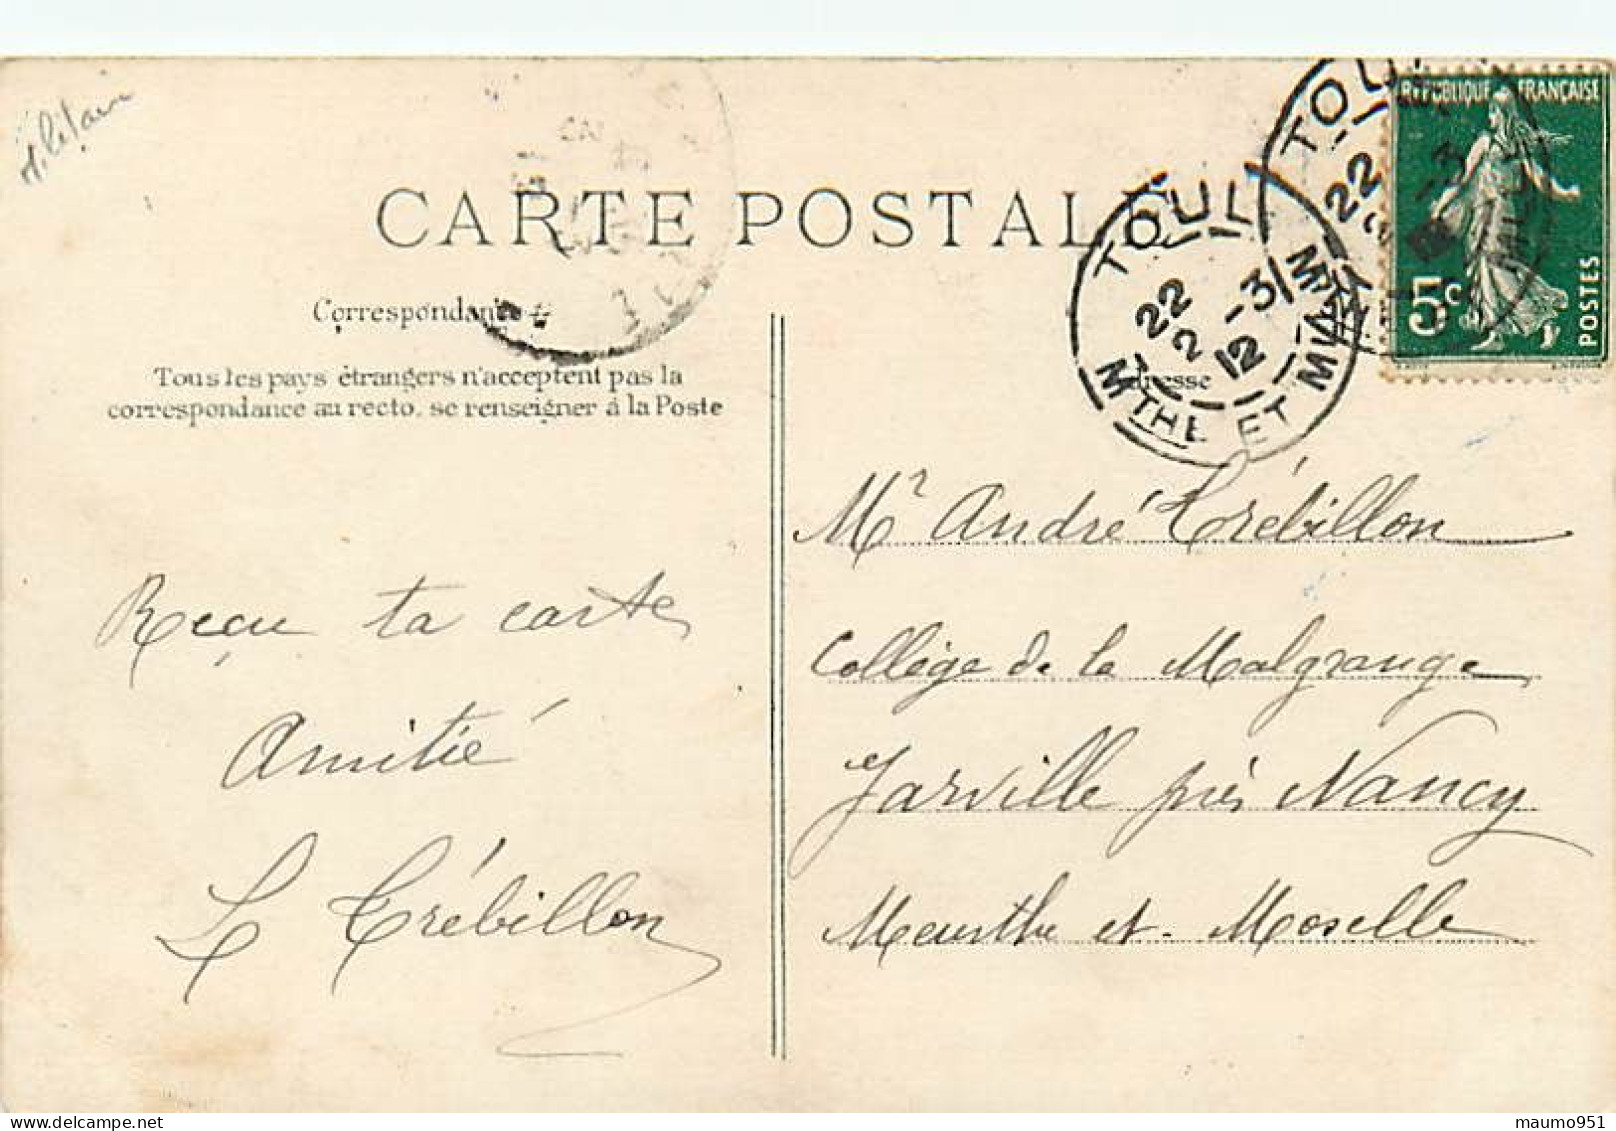 Militaire
CARTE POSTALE
TOUL
22
2 -3
12
MTHE ET MLLE
TOUL
22
RÉPUBLIQUE FRANÇAISE
5c
POSTES
Correspondance
Adresse
Tous les pays étrangers n'acceptent pas la
correspondance au recto. se renseigner à la Poste
Mr André Crébillon
Collège de la Malgrange
Jarville près Nancy
Meurthe et Moselle
Reçu ta carte
Amitié
L Crébillon
maumo951